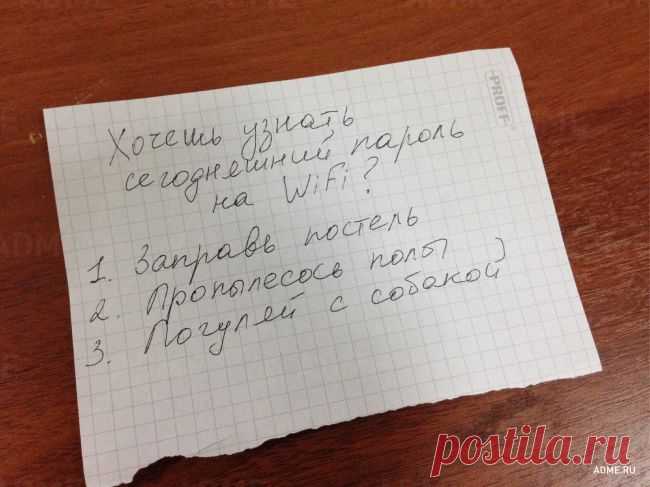 PROFF
Хочешь узнать
сегодняшний пароль
на WiFi?
1. Заправь постель
2. Пропылесось полы
3. Погуляй с собакой )
postila.ru
ADME.RU